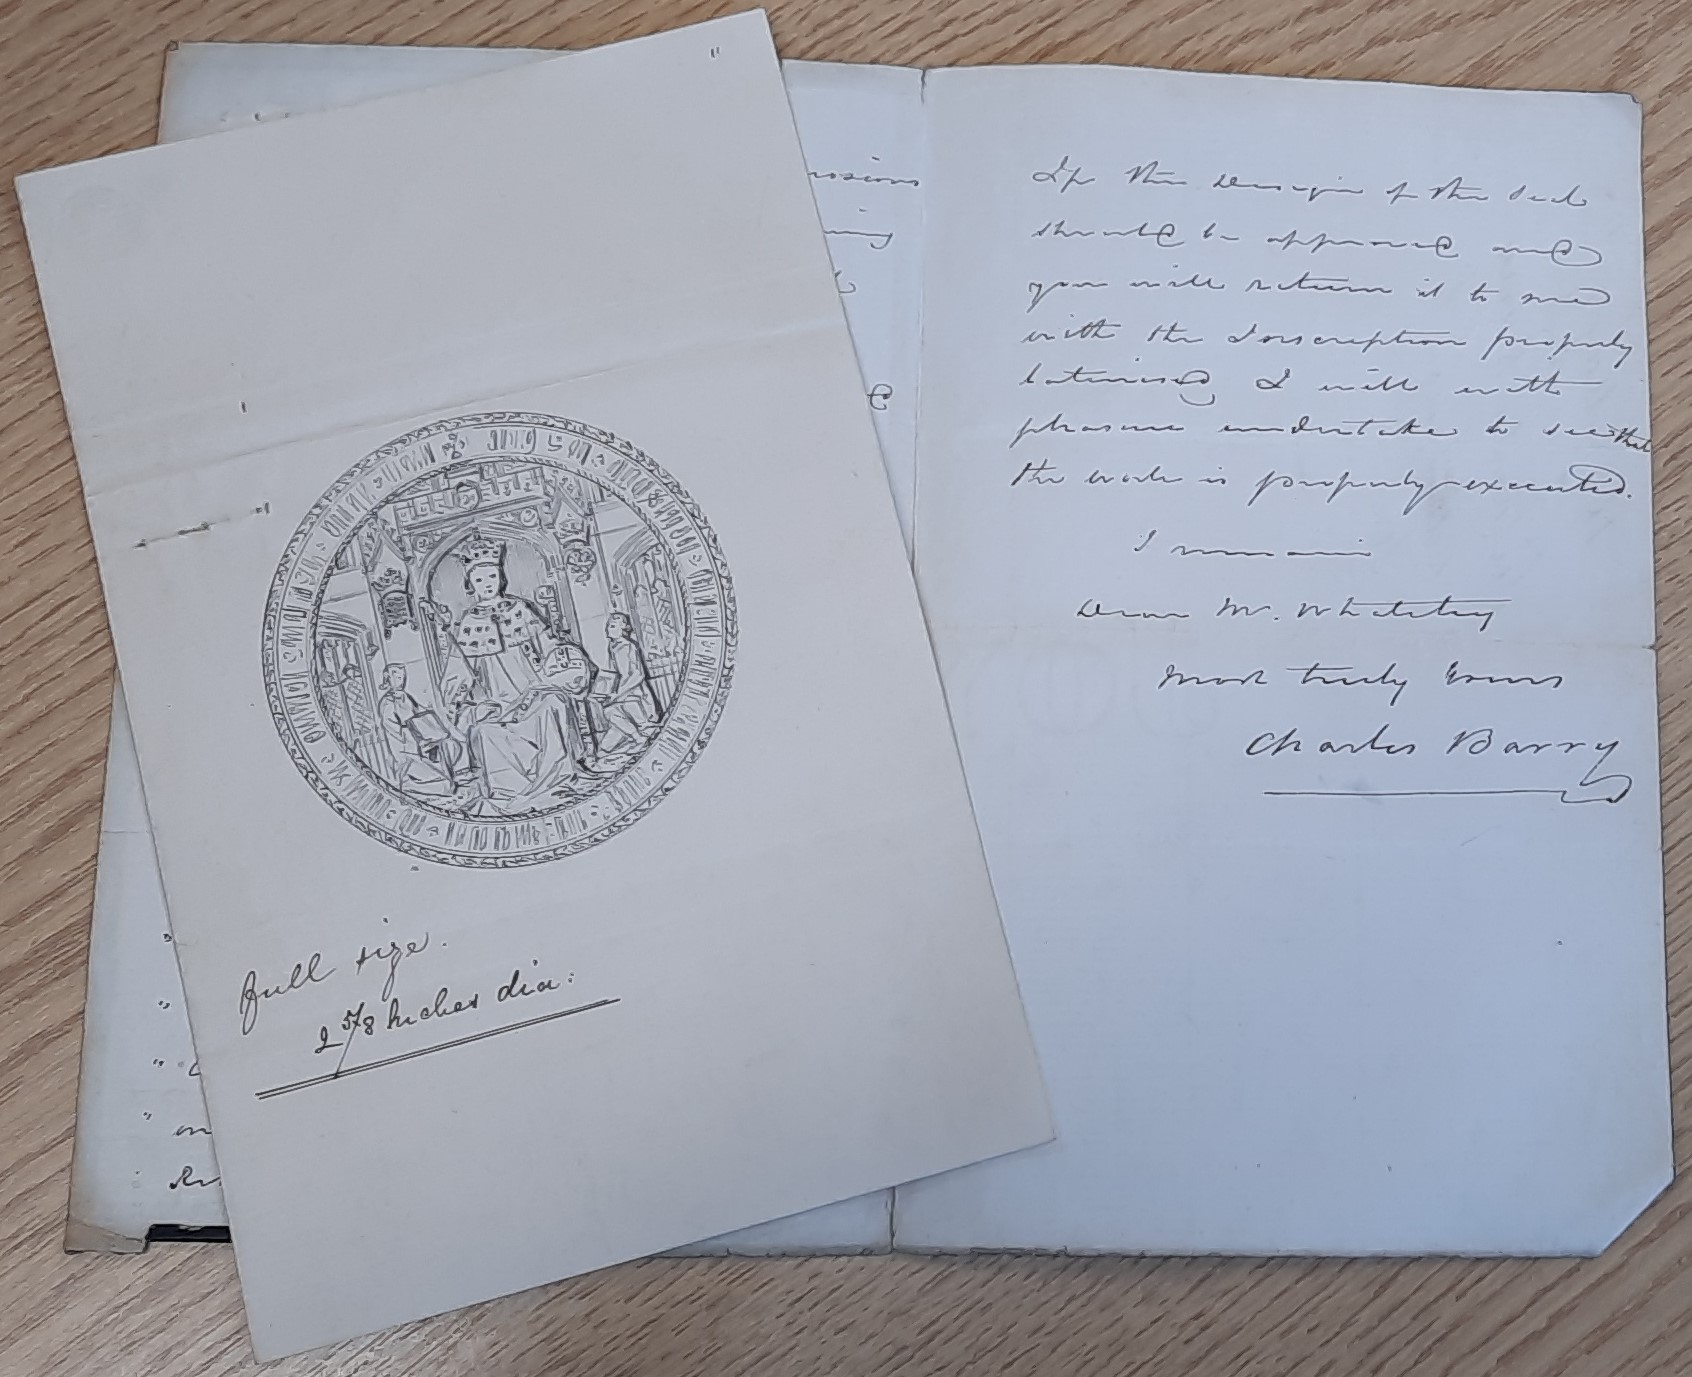 full size.
2 5/8 Inches dia:
If the Design of the Seal
should be approved and
you will return it to me
with the Inscription properly
latinised I will with
pleasure undertake to see that
the work is properly executed.
I remain
Dear Mr. Whateley
Most truly Yours
Charles Barry